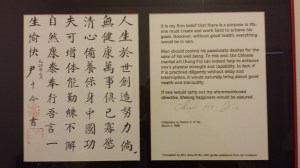 人生於世創造努力倘
無健康萬事俱已需慾
清心備養保身中國功
夫可增体能勤練不解
自然康泰奉行吾言一
生愉快
書
It is my firm belief that there is a purpose in life:
one must create and work hard to achieve his
goals. However, without good health, everything
would be in vain.
Man should control his passionate desires for the
sake of his well being. To this end, the Chinese
martial art (Kung Fu) can indeed help to enhance
one's physical strength and capability. In fact, if
it is practiced diligently without delay and
interruption, it would naturally bring about good
health and tranquility.
If one would carry out my aforementioned
directive, lifelong happiness would be assured.